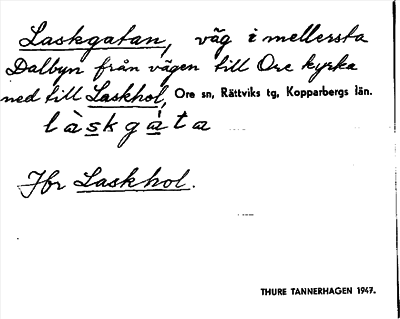 Laskgatan, väg i mellersta
Dalbyn från vägen till Ore kyrka
ned till Laskhol, Ore sn, Rättviks tg, Kopparbergs län.
làskgàta
Jfr Laskhol.
THURE TANNERHAGEN 1947.